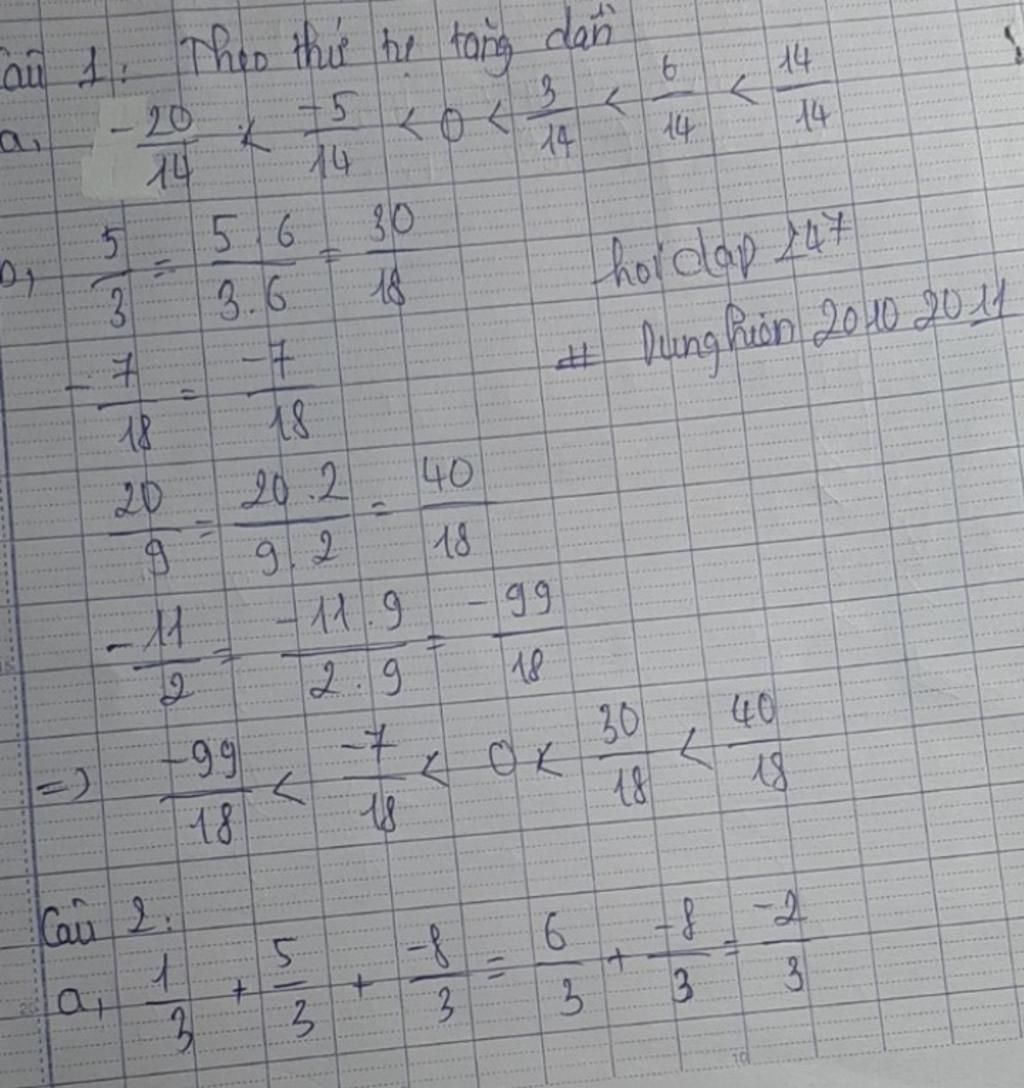 Câu 1: Theo thứ tự tăng dần
a, -20/14 < -5/14 < 0 < 3/14 < 6/14 < 14/14
b, 5/3 = 5.6/3.6 = 30/18
hoidap 247
-7/18 = -7/18
# Dunghien 2010 2011
20/9 = 20.2/9.2 = 40/18
-11/2 = -11.9/2.9 = -99/18
=) -99/18 < -7/18 < 0 < 30/18 < 40/18
Câu 2:
a, 1/3 + 5/3 + -8/3 = 6/3 + -8/3 = -2/3